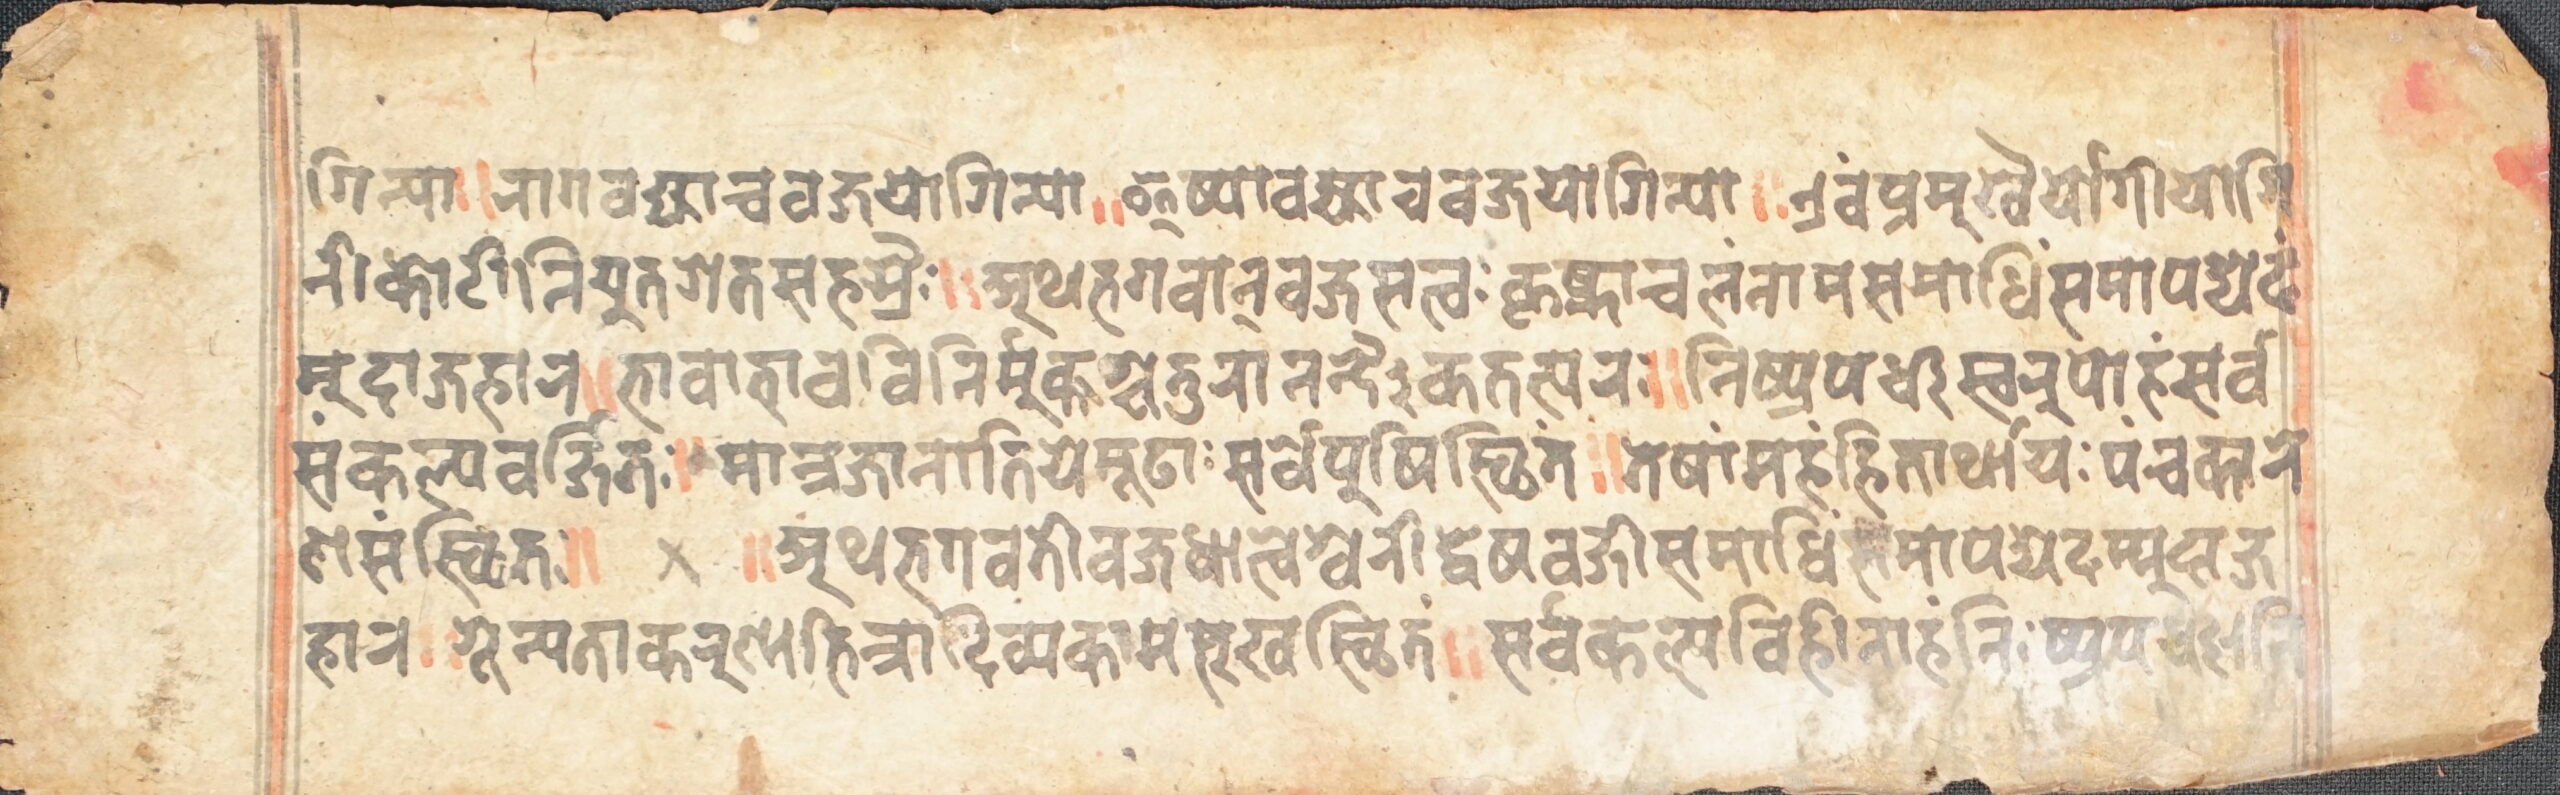 गिन्या ॥ रागवज्र्या च वज्रयोगिन्या ॥ ईर्ष्यावज्र्या च वज्रयोगिन्या ॥ एवंप्रमुखैर्योगीयोगि
नीकोटीनियुतशतसहस्रैः ॥ अथ भगवान् वज्रसत्वः कृष्णाचलं नाम समाधिं समापद्येदं
मुदाजहार ॥ भावाभावविनिर्मुक्तश्चतुरानन्दैकतत्परः ॥ निष्प्रपञ्चस्वरूपोहं सर्व
संकल्पवर्जितः ॥ मान्न जानाति ये मूढाः सर्वे पुंषि स्थितं ॥ तेषामहं हितार्थायः पंचकार
ण संस्थितः ॥ ॥ अथ भगवती वज्रधात्वेश्वरी द्वेषवज्री समाधिं समापद्येदमुदाज
हार ॥ शून्यताकरुणाभिन्ना दिव्यकामसुखस्थितं ॥ सर्वकल्पविहीनाहं निःष्प्रपञ्चा नि